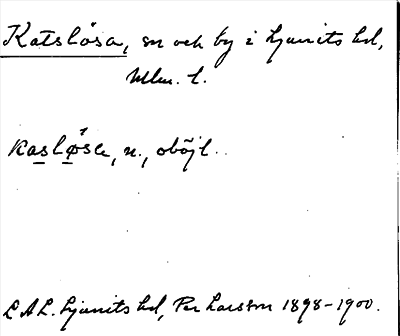 Katslösa, sn och by i Ljunits hd,
Mlm. l.
kasløsa, n., oböjl.
L A L. Ljunits hd, Per Larsson 1898-1900.